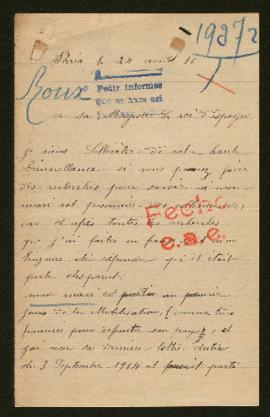 19272
Paris le 24 avril 16
Roux
Pedir informes
que se haga así
a sa Majesté le roi d'Espagne
je viens solliciter de votre haute
bienveillance si vous pouvez faire
des recherches pour savoir si mon
mari est prisonnier en
car d'après toutes les recherches
que j'ai faites en France on m'a
toujours répondu qu'il était
porté disparu.
Fecho
e.a.e.
mon mari est partie au premier
jour de la Mobilisation, comme tous
pour défendre son pays, et
j'ai reçu sa dernière lettre datée
du 3 Septembre 1914 et